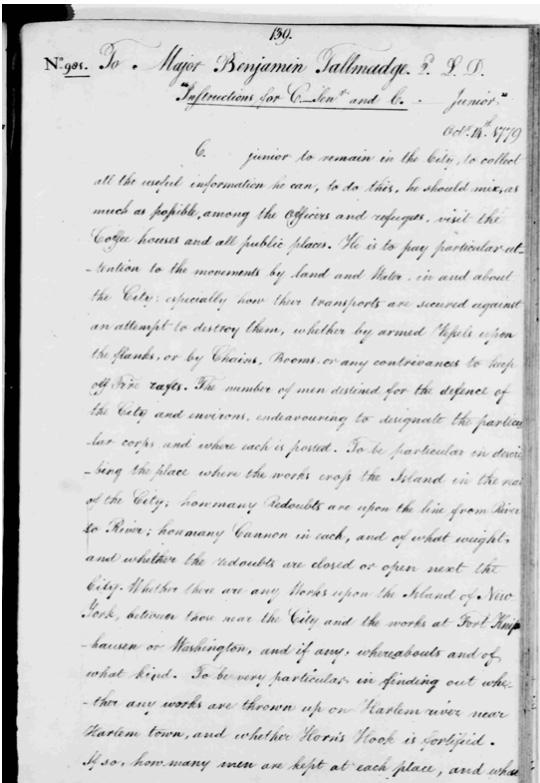 139.
No. 985. To Major Benjamin Tallmadge. P. L. D.
"Instructions for C. Senr. and C. Junior."
Octr. 14th. 1779
C. junior to remain in the City, to collect
all the useful information he can, to do this, he should mix, as
much as possible, among the Officers and refugees, visit the
Coffee houses and all public places. He is to pay particular at-
-tention to the movements by land and Water, in and about
the City; especially how their transports are secured against
an attempt to destroy them, whether by armed Vessels upon
the flanks, or by Chains, Booms, or any contrivances to keep
off Fire rafts. The number of men destined for the defence of
the City and environs, endeavouring to designate the particu
-lar corps and where each is posted. To be particular in descri
-bing the place where the works cross the Island in the rea
of the City; how many Redoubts are upon the line from River
to River; how many Cannon in each, and of what weight,
and whether the redoubts are closed or open next the
City. Whether there are any Works upon the Island of New
York, between those near the City and the works at Fort Knip
-hausen or Washington, and if any, whereabouts and of
what kind. To be very particular in finding out whe-
-ther any works are thrown up on Harlem river near
Harlem town, and whether Horn's Hook is fortified.
If so, how many men are kept at each place, and what